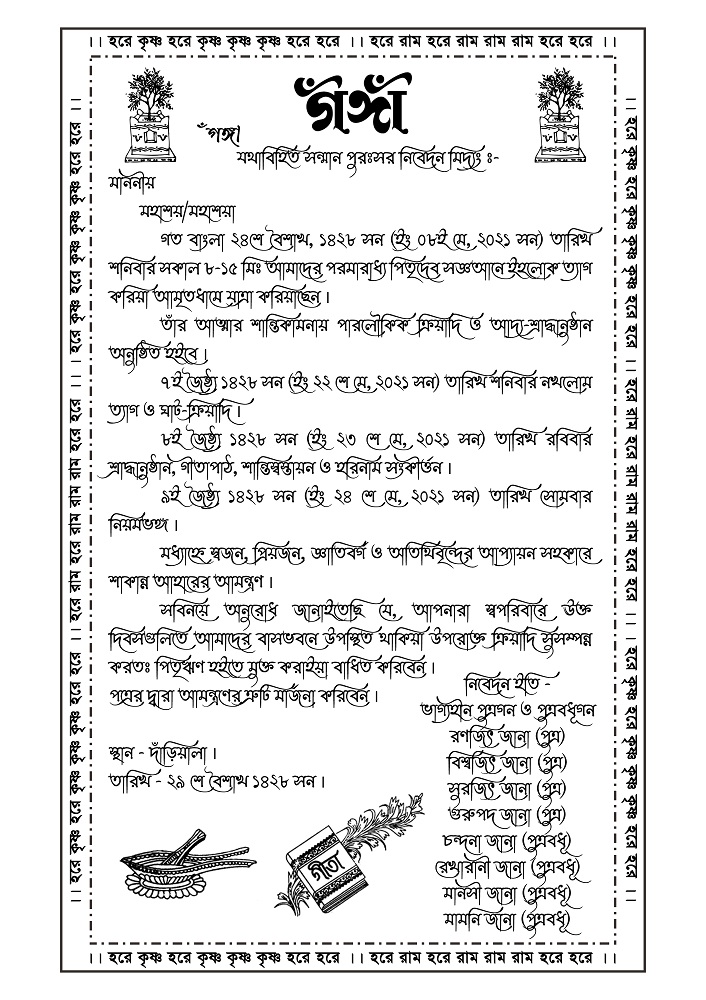 ।। হরে কৃষ্ণ হরে কৃষ্ণ কৃষ্ণ কৃষ্ণ হরে হরে ।। হরে রাম হরে রাম রাম রাম হরে হরে ।।
গঙ্গা
ঁগঙ্গা
যথাবিহিত সন্মান পুরঃসর নিবেদন মিদ্যং ঃ-
মাননীয়
মহাশয়/মহাশয়া
গত বাংলা ২৪শে বৈশাখ, ১৪২৮ সন (ইং ০৮ই মে, ২০২১ সন) তারিখ
শনিবার সকাল ৮-১৫ মিঃ আমাদের পরমারাধ্য পিতৃদেব সজ্ঞানে ইহলোক ত্যাগ
করিয়া অমৃতধামে যাত্রা করিয়াছেন।
তাঁর আত্মার শান্তিকামনায় পারলৌকিক ক্রিয়াদি ও আদ্য-শ্রাদ্ধানুষ্ঠান
অনুষ্ঠিত হইবে।
৭ই জৈষ্ঠ্য ১৪২৮ সন (ইং ২২ শে মে, ২০২১ সন) তারিখ শনিবার নখলোম
ত্যাগ ও ঘাট-ক্রিয়াদি।
৮ই জৈষ্ঠ্য ১৪২৮ সন (ইং ২৩ শে মে, ২০২১ সন) তারিখ রবিবার
শ্রাদ্ধানুষ্ঠান, গীতাপাঠ, শান্তিস্বস্ত্যয়ন ও হরিনাম সংকীর্তন।
৯ই জৈষ্ঠ্য ১৪২৮ সন (ইং ২৪ শে মে, ২০২১ সন) তারিখ সোমবার
নিয়মভঙ্গ।
মধ্যাহ্নে স্বজন, প্রিয়জন, জ্ঞাতিবর্গ ও অতিথিবৃন্দের আপ্যায়ন সহকারে
শাকান্ন আহারের আমন্ত্রণ।
সবিনয়ে অনুরোধ জানাইতেছি যে, আপনারা স্বপরিবারে উক্ত
দিবসগুলিতে আমাদের বাসভবনে উপস্থিত থাকিয়া উপরোক্ত ক্রিয়াদি সুসম্পন্ন
করতঃ পিতৃঋণ হইতে মুক্ত করাইয়া বাধিত করিবেন।
পত্রের দ্বারা আমন্ত্রণের ত্রুটি মার্জনা করিবেন।
নিবেদন ইতি -
ভাগ্যহীন পুত্রগন ও পুত্রবধূগন
রণজিৎ জানা (পুত্র)
বিশ্বজিৎ জানা (পুত্র)
সুরজিৎ জানা (পুত্র)
গুরুপদ জানা (পুত্র)
চন্দনা জানা (পুত্রবধূ)
রেখারানী জানা (পুত্রবধূ)
মানসী জানা (পুত্রবধূ)
মামনি জানা (পুত্রবধূ)
স্থান - দাঁড়িয়ালা।
তারিখ - ২৯ শে বৈশাখ ১৪২৮ সন।
গীতা
।। হরে কৃষ্ণ হরে কৃষ্ণ কৃষ্ণ কৃষ্ণ হরে হরে ।। হরে রাম হরে রাম রাম রাম হরে হরে ।। হরে কৃষ্ণ হরে কৃষ্ণ কৃষ্ণ কৃষ্ণ হরে হরে ।।
।। হরে কৃষ্ণ হরে কৃষ্ণ কৃষ্ণ কৃষ্ণ হরে হরে ।। হরে রাম হরে রাম রাম রাম হরে হরে ।। হরে কৃষ্ণ হরে কৃষ্ণ কৃষ্ণ কৃষ্ণ হরে হরে ।।
।। হরে কৃষ্ণ হরে কৃষ্ণ কৃষ্ণ কৃষ্ণ হরে হরে ।। হরে রাম হরে রাম রাম রাম হরে হরে ।।